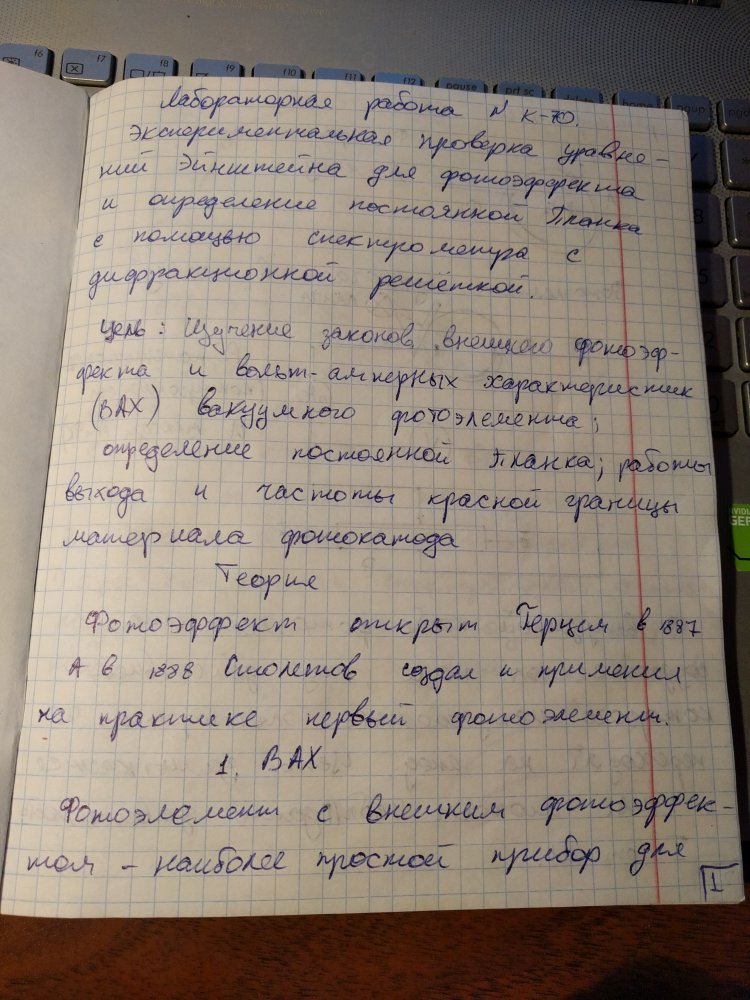 f6 f7 f8 f9 f10 f11 f12 pause prt sc delete home pgup
Лабораторная работа N К-70.
Экспериментальная проверка уравне-
ний Эйнштейна для фотоэффекта
и определение постоянной Планка
с помощью спектрометра с
дифракционной решёткой.
Цель: Изучение законов внешнего фотоэф-
фекта и вольт-амперных характеристик
(ВАХ) вакуумного фотоэлемента;
определение постоянной Планка; работы
выхода и частоты красной границы
материала фотокатода
Теория
Фотоэффект открыт Герцем в 1887
А в 1888 Столетов создал и применил
на практике первый фотоэлемент.
1. ВАХ
Фотоэлемент с внешним фотоэффек-
том – наиболее простой прибор для
1